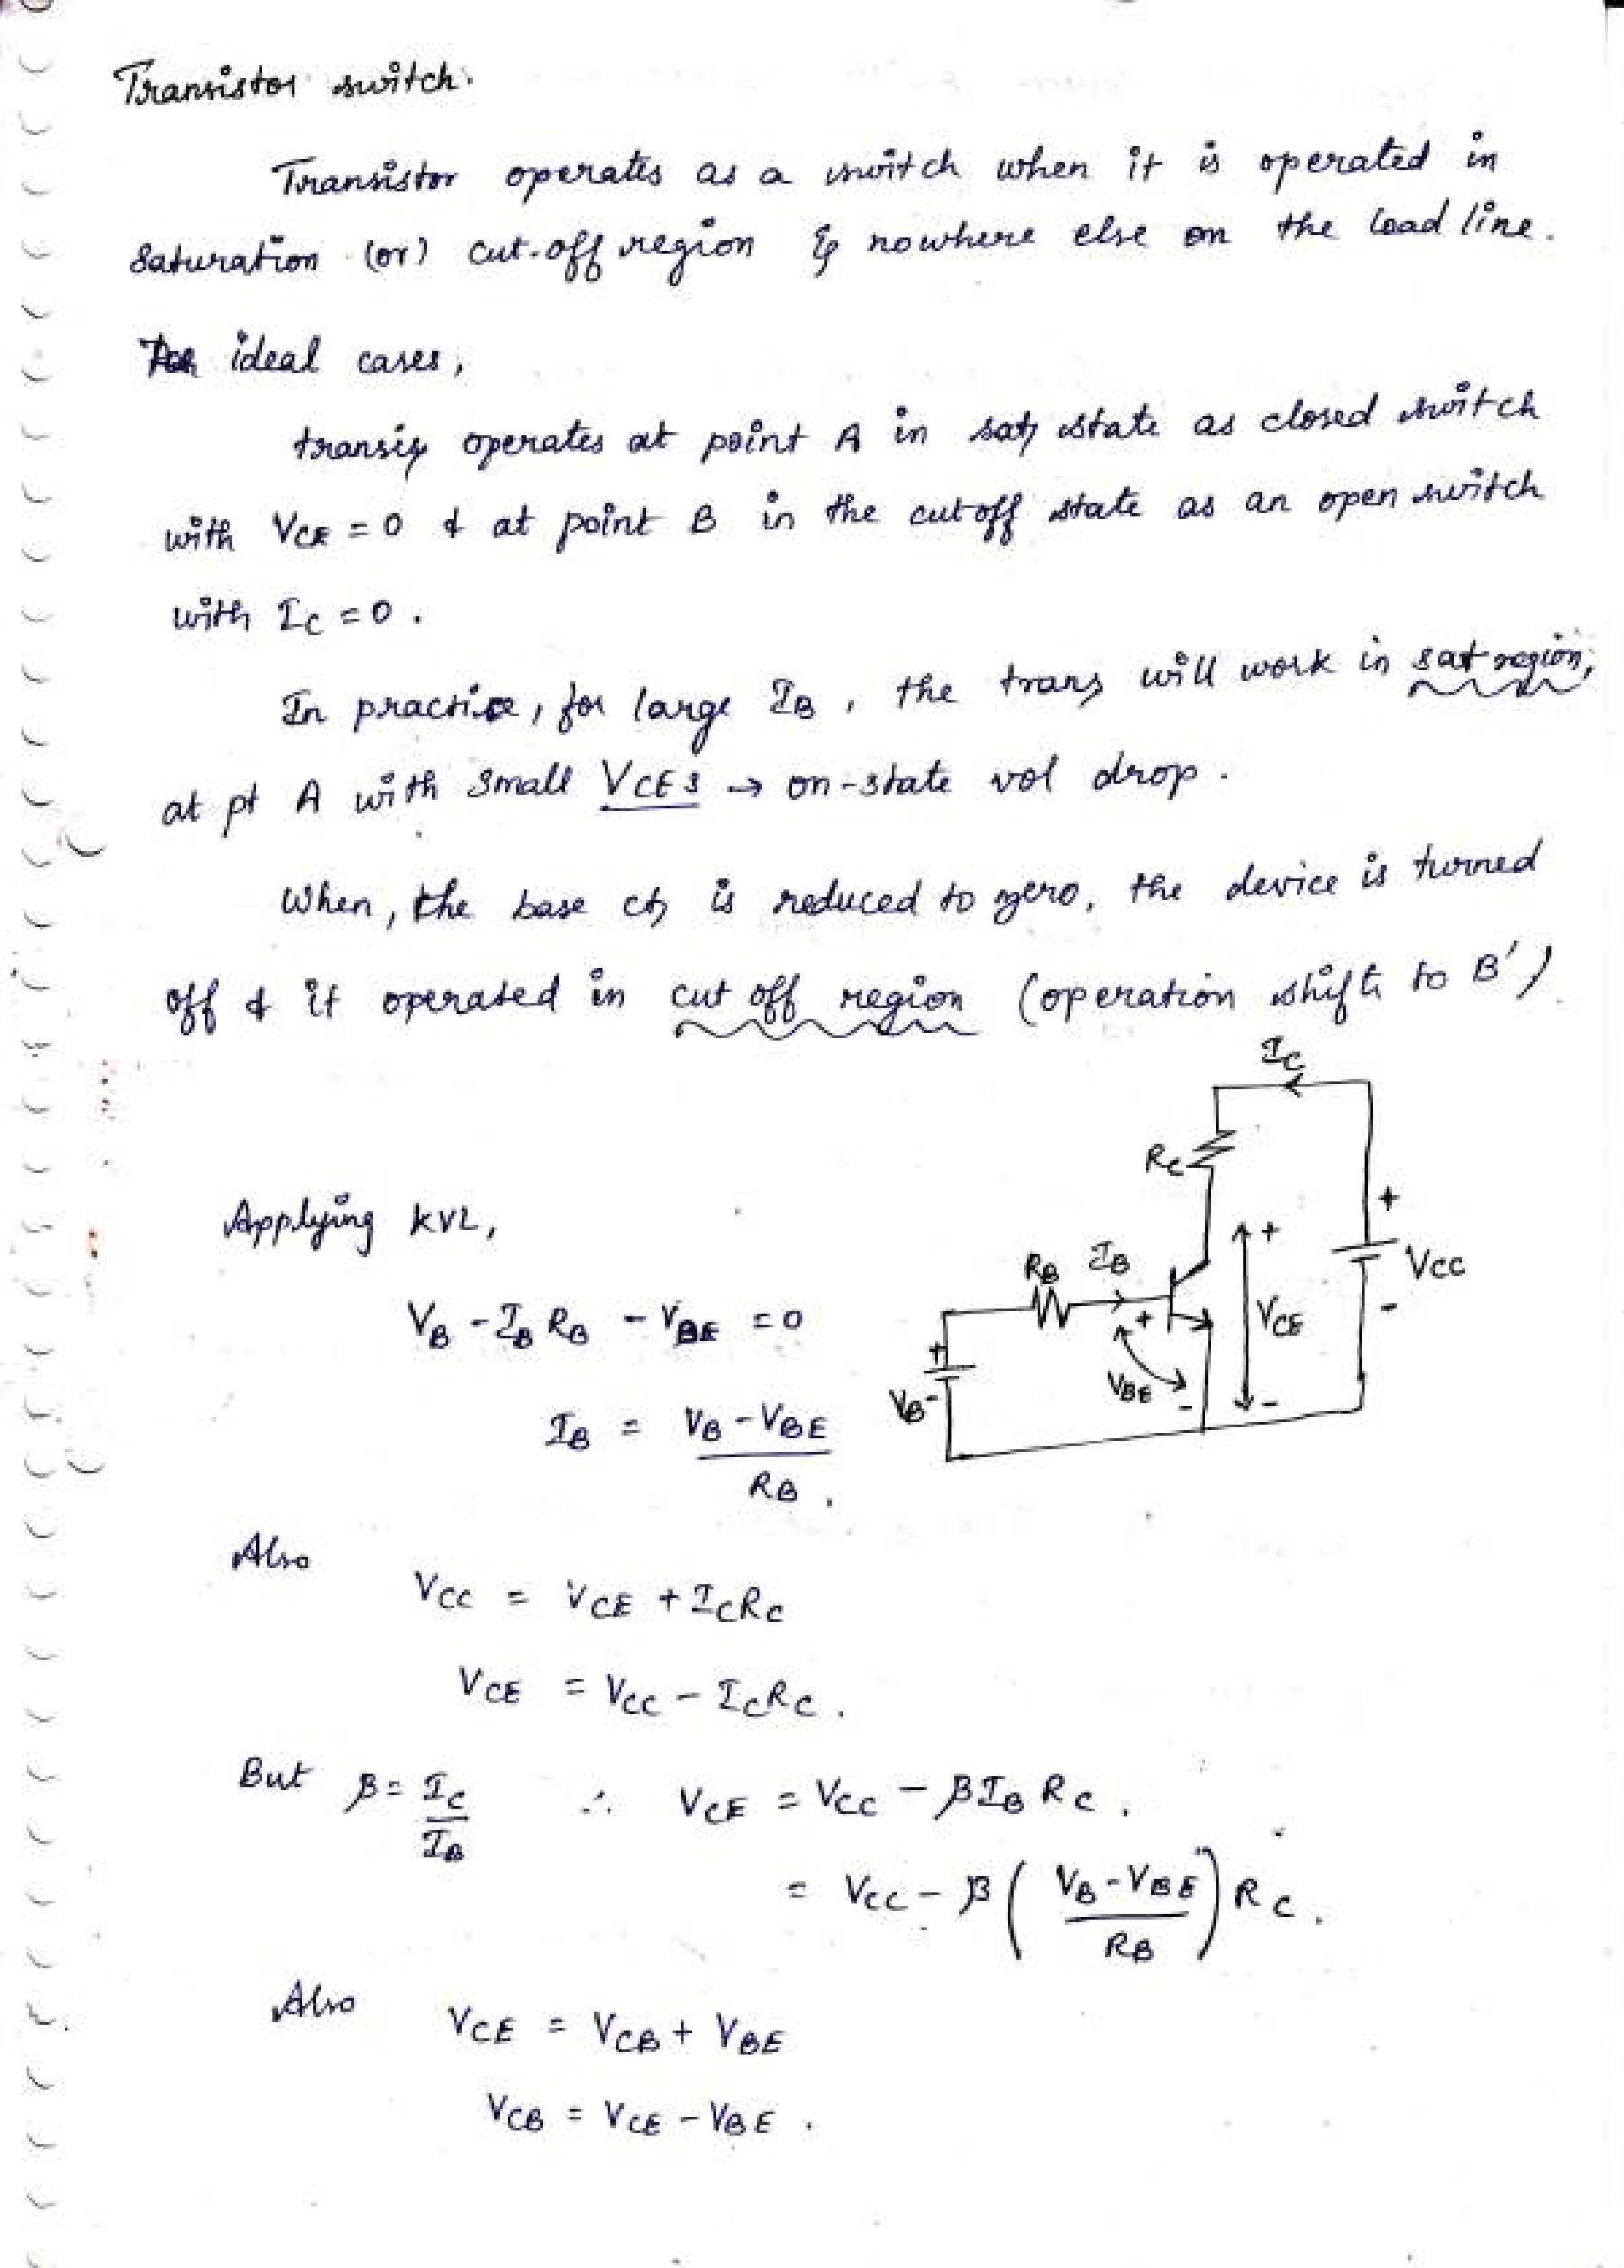 Transistor switch.
Transistor operates as a switch when it is operated in
saturation (or) cut-off region & nowhere else on the load line.
For ideal cases,
transis operates at point A in satn state as closed switch
with VCE = 0 & at point B in the cutoff state as an open switch
with IC = 0.
In practice, for large IB, the trans will work in sat region,
at pt A with small VCES → on-state vol drop.
When, the base ct is reduced to zero, the device is turned
off & it operated in cut off region (operation shifts to B')
IC
RC
+
Applying KVL,
+
RB IB
VCC
VB - IB RB - VBE = 0
+
VCE
-
+
VBE
VB -
-
-
IB = VB - VBE / RB.
Also
VCC = VCE + ICRC
VCE = VCC - ICRC.
But β = IC / IB ∴ VCE = VCC - βIB RC.
= VCC - β (VB - VBE / RB) RC.
Also
VCE = VCB + VBE
VCB = VCE - VBE.